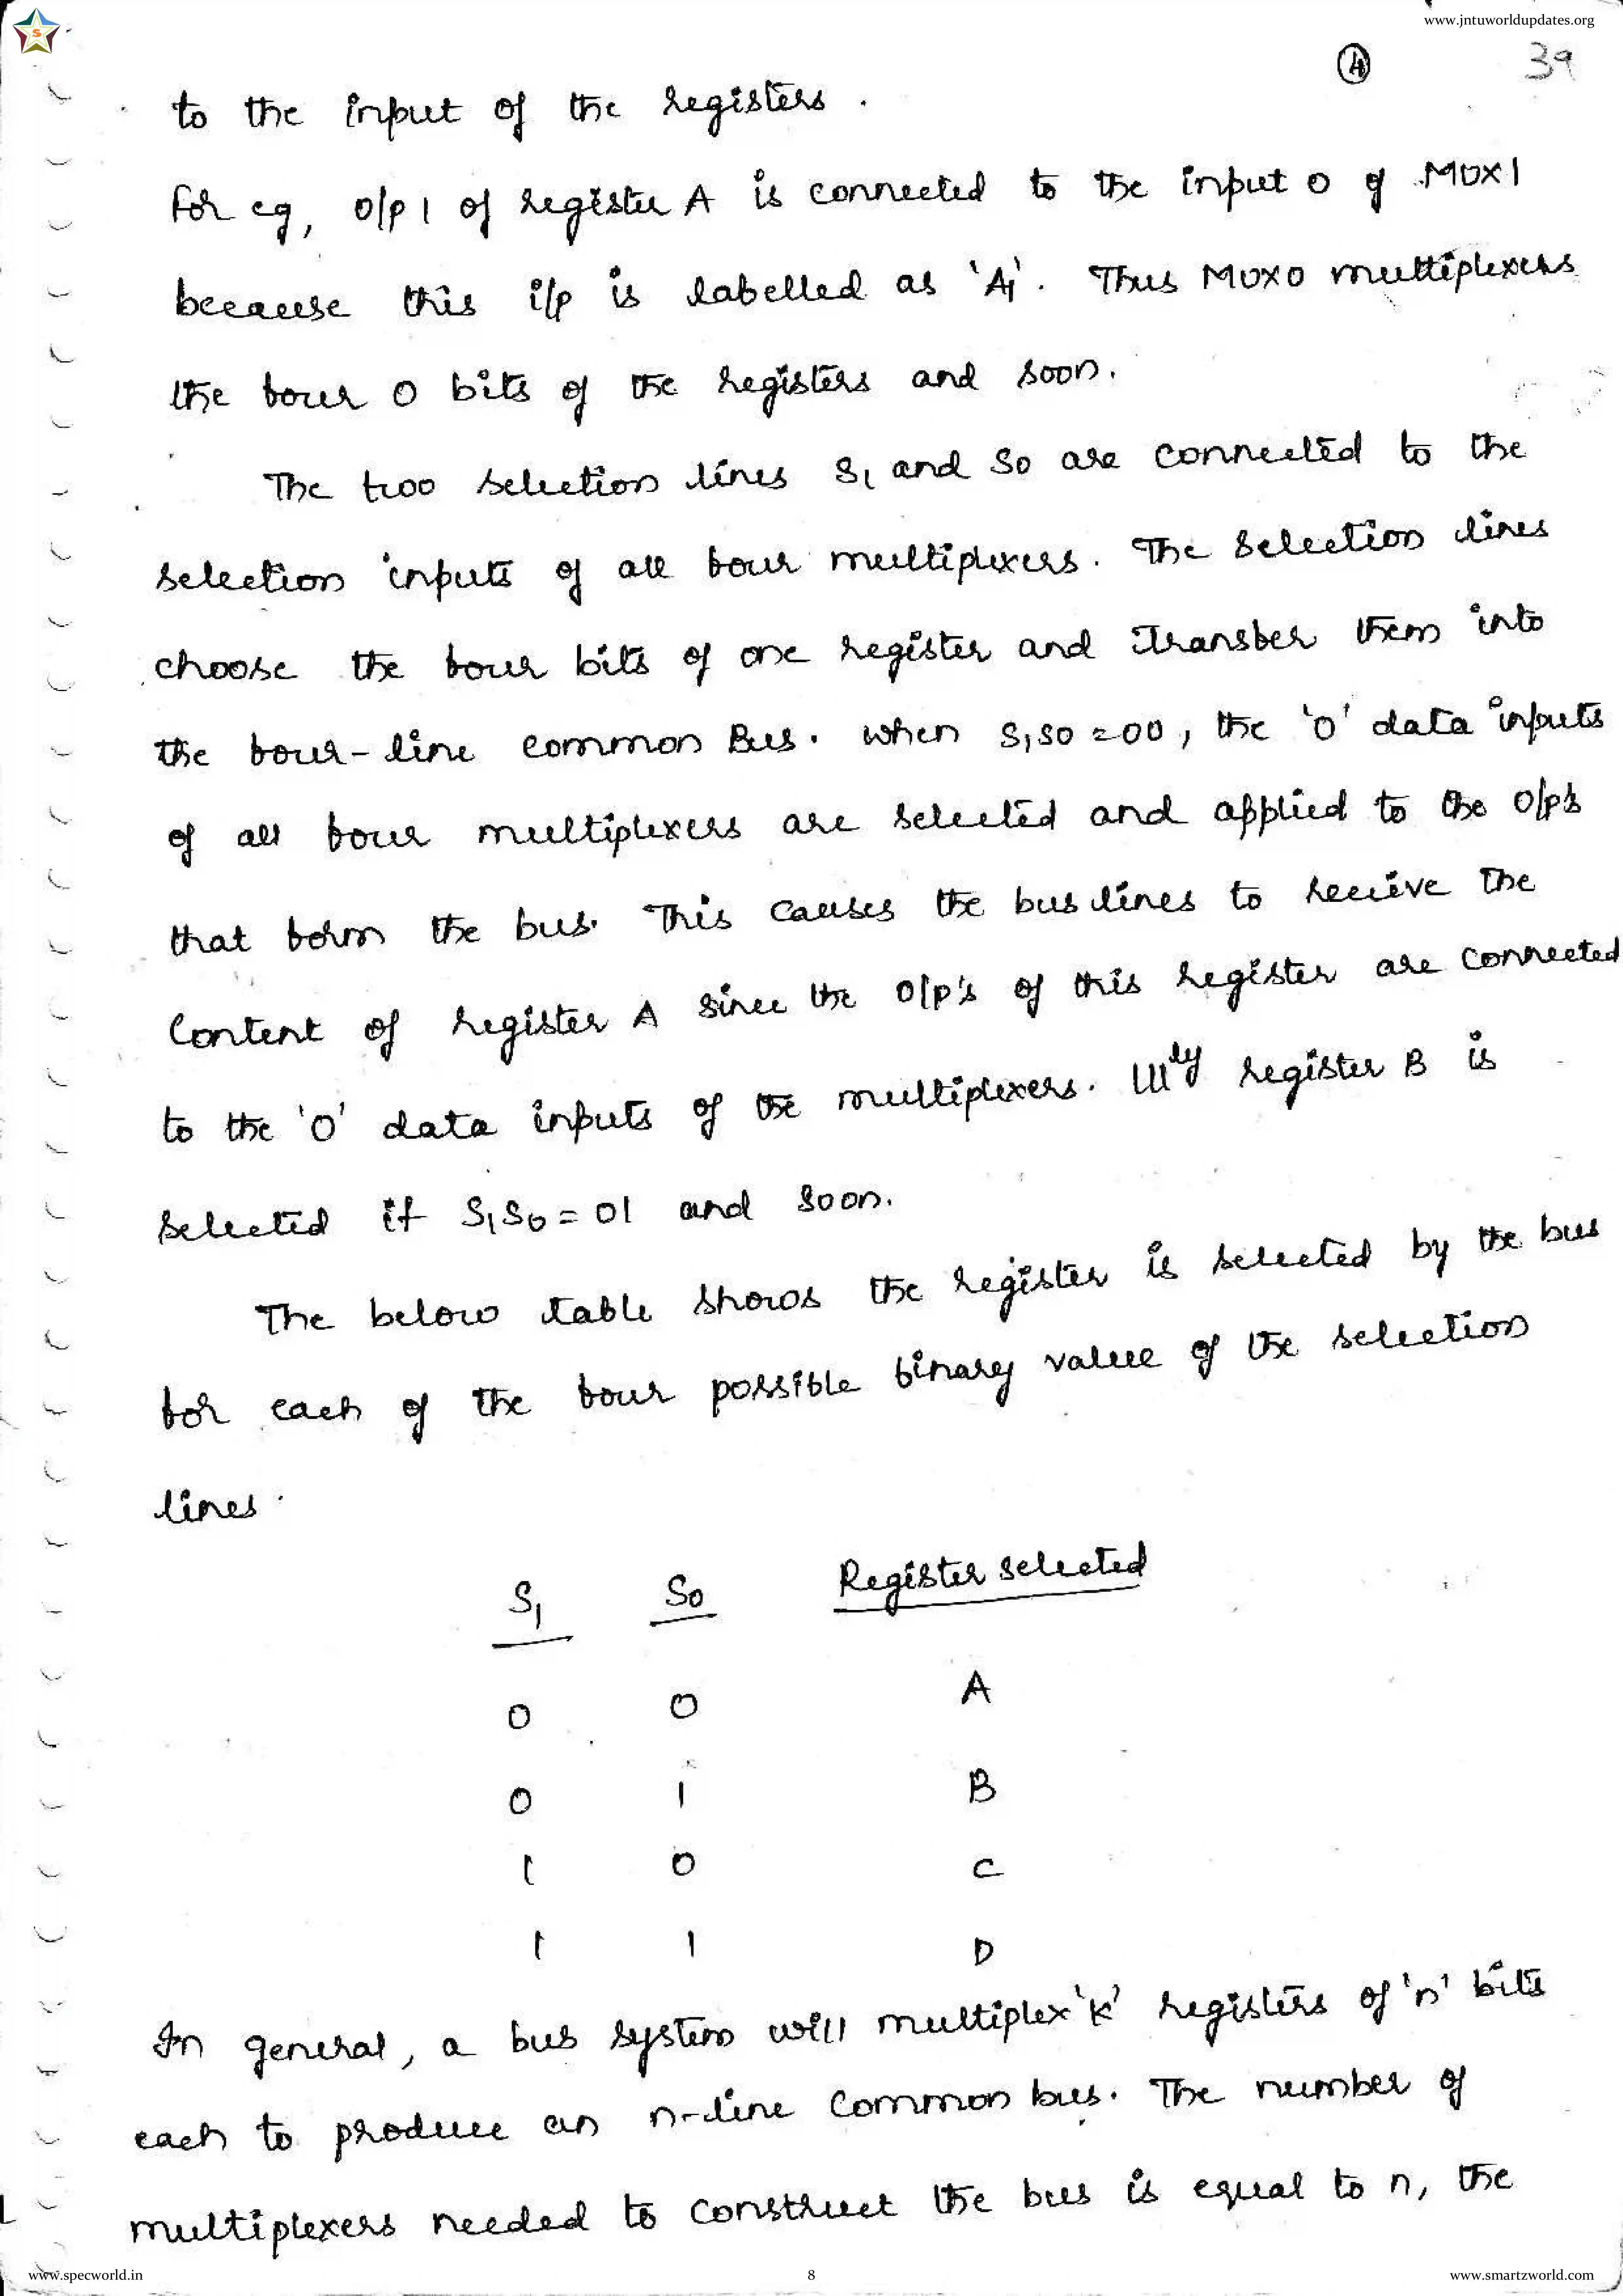 www.jntuworldupdates.org
S
4 39
to the input of the registers.
For eg, o/p 1 of register A is connected to the input 0 of MUX1
because this i/p is labelled as 'A1'. Thus MUX0 multiplexers
the four 0 bits of the registers and soon.
The two selection lines S1 and S0 are connected to the
selection inputs of all four multiplexers. The selection lines
choose the four bits of one register and transfer them into
the four-line common Bus. When S1S0=00, the '0' data inputs
of all four multiplexers are selected and applied to the o/p's
that form the bus. This causes the bus lines to recieve the
Content of register A since the o/p's of this register are connected
to the '0' data inputs of the multiplexers. lllly register B is
selected if S1S0=01 and soon.
The below table shows the register is selected by the bus
for each of the four possible binary value of the selection
lines.
S1 S0 Register selected
0 0 A
0 1 B
1 0 C
1 1 D
In general, a bus system will multiplex 'k' registers of 'n' bits
each to produce an n-line common bus. The number of
multiplexers needed to construct the bus is equal to n, the
www.specworld.in 8 www.smartzworld.com